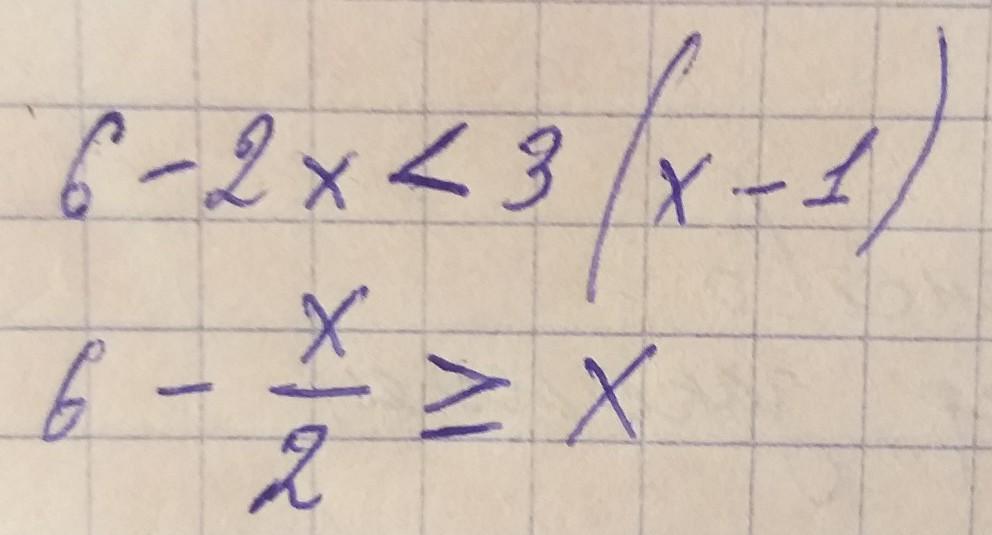 6 - 2x < 3(x - 1)
6 - x/2 ≥ x